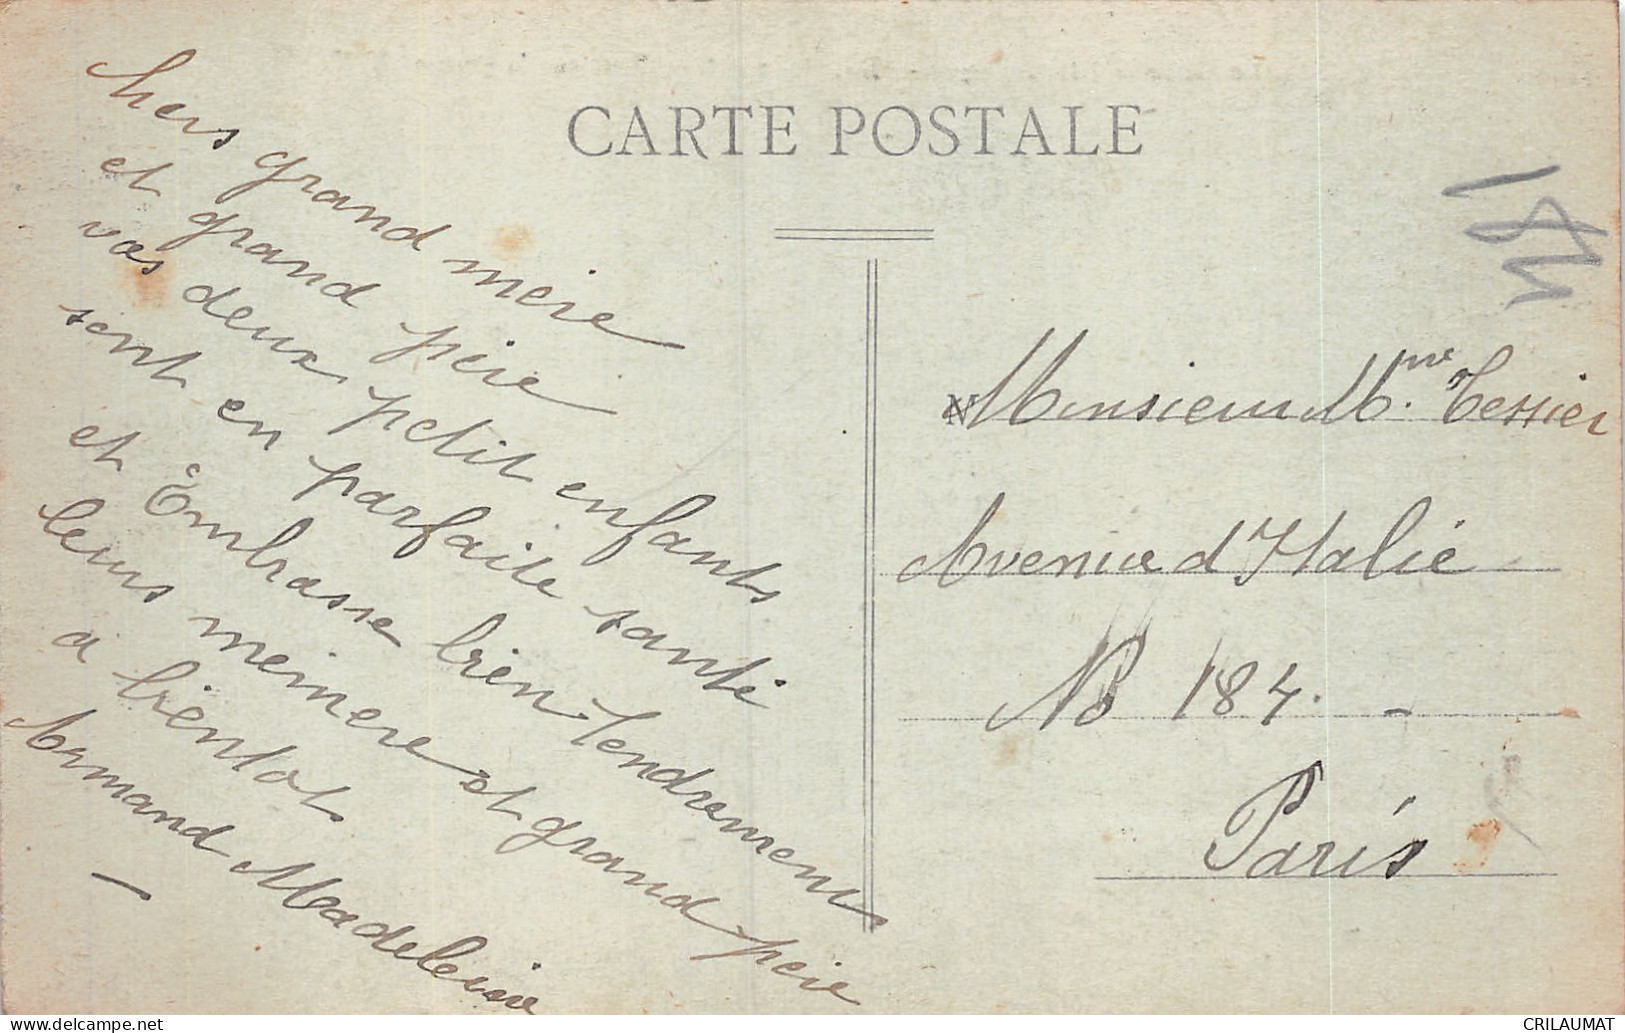 CARTE POSTALE
chers grand mère
et grand père
vos deux petit enfants
sont en parfaite santé
et Embrasse bien Tendrement
leurs memere et grand père
a bientot
Armand Madeleine
Monsieur Mme Tessier
Avenue d'Italie
No 184.
Paris
CRILAUMAT